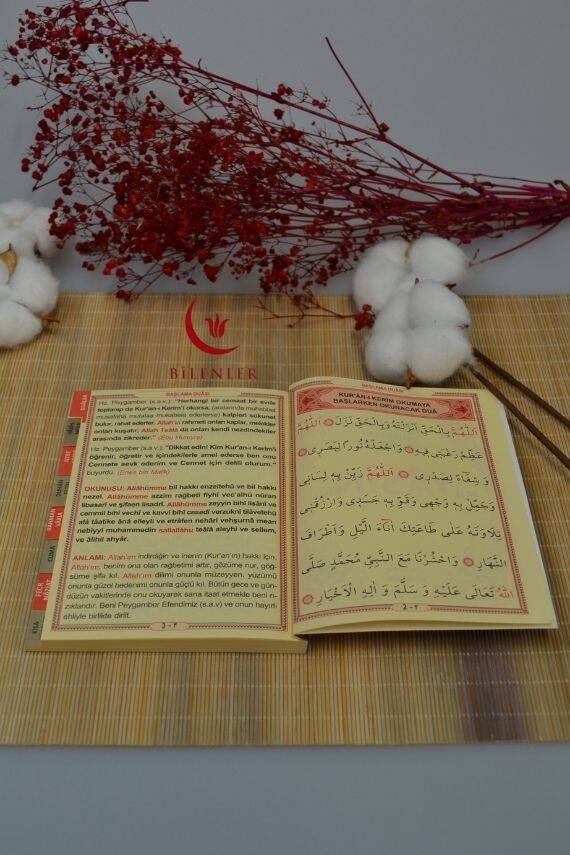 BİLENLER
BAŞLAMA DUÂSI
Hz. Peygamber (s.a.v.): "Herhangi bir cemaat bir evde
toplanıp da Kur'an-ı Kerim'i okursa, (aralarında muhabbet
musafaha mutalaa mukabele ederlerse) kalpleri sükunet
bulur, rahat ederler. Allah'ın rahmeti onları kaplar, melekler
onları kuşatır, Allah Teâlâ da onları kendi nezdindekiler
arasında zikreder." (Ebu Hureyre)
Hz. Peygamber (s.a.v.): "Dikkat edin! Kim Kur'an-ı Kerim'i
öğrenir, öğretir ve içindekilerle amel ederse ben onu
Cennete sevk ederim ve Cennet için delili olurum."
buyurdu. (Enes bin Malik)
OKUNUŞU: Allâhümme bil hakkı enzeltehû ve bil hakkı
nezel. Allâhümme azzim rağbetî fîyhi vec'alhü nûran
libasarî ve şifaen lisadrî. Allâhümme zeyyin bihî lisânî ve
cemmil bihî vechî ve kavvi bihî cesedî verzuknî tilâvetehû
alâ tâatike ânâ elleyli ve etrâfen nehâri vehşurnâ mean
nebiyyi muhammedin sallallâhu teâlâ aleyhi ve sellem,
ve âlihil ahyâr.
ANLAMI: Allah'ım indirdiğin ve inerin (Kur'an'ın) hakkı için.
Allah'ım, benim ona olan rağbetimi artır, gözüme nur, göğ-
süme şifa kıl. Allah'ım dilimi onunla müzeyyen, yüzümü
onunla güzel bedenimi onunla güçlü kıl. Bütün gece ve gün-
düzün vakitlerinde onu okuyarak sana itaat etmekle beni rı-
zıklandır. Beni Peygamber Efendimiz (s.a.v) ve onun hayırlı
ehliyle birlikte dirilt.
3 - ٣
CUMA
FECR
KISA
BAŞLAMA DUÂSI
KUR'ÂN-I KERİM OKUMAYA
BAŞLARKEN OKUNACAK DUÂ
اَللّٰهُمَّ بِالْحَقِّ اَنْزَلْتَهُ وَبِالْحَقِّ نَزَلَ اَللّٰهُمَّ
عَظِّمْ رَغْبَتِى فِيهِ وَاجْعَلْهُ نُورًا لِبَصَرِى
وَشِفَاءً لِصَدْرِى اَللّٰهُمَّ زَيِّنْ بِهِ لِسَانِى
وَجَمِّلْ بِهِ وَجْهِى وَقَوِّ بِهِ جَسَدِى وَارْزُقْنِى
تِلَاوَتَهُ عَلٰى طَاعَتِكَ اٰنَاءَ الَّيْلِ وَاَطْرَافَ
النَّهَارِ وَاحْشُرْنَا مَعَ النَّبِيِّ مُحَمَّدٍ صَلَّى
اللّٰهُ تَعَالٰى عَلَيْهِ وَسَلَّمَ وَاٰلِهِ الْاَخْيَارِ
2 - ٢